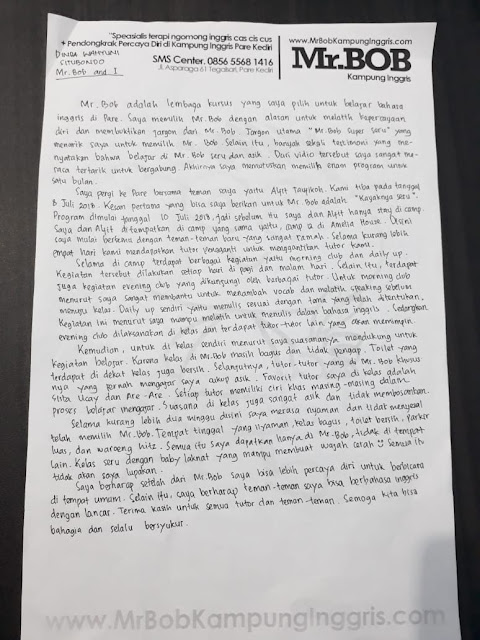 "Spesialis terapi ngomong inggris cas cis cus
+ Pendongkrak Percaya Diri di Kampung Inggris Pare Kediri
SMS Center. 0856 5568 1416
Jl. Asparaga 61 Tegalsari, Pare Kediri
www.MrBobKampungInggris.com
Mr.BOB
Kampung Inggris
DINDA WAHYUNI
SITUBONDO
Mr. Bob and I
Mr. Bob adalah lembaga kursus yang saya pilih untuk belajar bahasa
inggris di Pare. Saya memilih Mr. Bob dengan alasan untuk melatih kepercayaan
diri dan membuktikan jargon dari Mr. Bob. Jargon utama "Mr. Bob super seru" yang
menarik saya untuk memilih Mr. Bob. Selain itu, banyak sekali testimoni yang me-
nyatakan bahwa belajar di Mr. Bob seru dan asik. Dari vidio tersebut saya sangat me-
rasa tertarik untuk bergabung. Akhirnya saya memutuskan memilih enam program untuk
satu bulan.
Saya pergi ke Pare bersama teman saya yaitu Alfit Tayikoh. Kami tiba pada tanggal
8 Juli 2018. Kesan pertama yang bisa saya berikan untuk Mr. Bob adalah "kayaknya seru".
Program dimulai tanggal 10 Juli 2018. Jadi sebelum itu saya dan Alfit hanya stay di camp.
Saya dan Alfit ditempatkan di camp yang sama yaitu, camp 2 di Amelia House. Disini
saya mulai bertemu dengan teman-teman baru yang sangat ramah. Selama kurang lebih
empat hari kami mendapatkan tutor pengganti untuk menggantikan tutor kamu.
Selama di camp terdapat berbagai kegiatan yaitu morning club dan daily up.
Kegiatan tersebut dilakukan setiap hari di pagi dan malam hari. Selain itu, terdapat
juga kegiatan evening club yang dikunjungi oleh berbagai tutor. Untuk morning club
menurut saya sangat membantu untuk menambah vocab dan melatih speaking sebelum
menuju kelas. Daily up sendiri yaitu menulis sesuai dengan tema yang telah ditentukan.
Kegiatan ini menurut saya mampu melatih untuk menulis dalam bahasa inggris. Sedangkan
evening club dilaksanakan di kelas dan terdapat tutor-tutor lain yang akan memimpin.
Kemudian, untuk di kelas sendiri menurut saya suasananya mendukung untuk
kegiatan belajar. Karena kelas di Mr. Bob masih bagus dan tidak pengap. Toilet yang
terdapat di dekat kelas juga bersih. Selanjutnya, tutor-tutor yang di Mr. Bob khusus
nya yang pernah mengajar saya cukup asik. Favorit tutor saya di kelas adalah
Shita Ucay dan Are-Are. Setiap tutor memiliki ciri khas masing-masing dalam
proses belajar mengajar. Suasana di kelas juga sangat asik dan tidak membosankan.
Selama kurang lebih dua minggu disini saya merasa nyaman dan tidak menyesal
telah memilih Mr. Bob. Tempat tinggal yang nyaman, kelas bagus, toilet bersih, parkir
luas, dan waroeng hitz. Semua itu saya dapatkan hanya di Mr. Bob, tidak di tempat
lain. Kelas seru dengan baby laknat yang mampu membuat wajah cerah ☺ Semua itu
tidak akan saya lupakan.
Saya berharap setelah dari Mr. Bob saya bisa lebih percaya diri untuk berbicara
di tempat umum. Selain itu, saya berharap teman-teman saya bisa berbahasa inggris
dengan lancar. Terima kasih untuk semua tutor dan teman-teman. Semoga kita bisa
bahagia dan selalu bersyukur.
www.MrBobKampungInggris.com